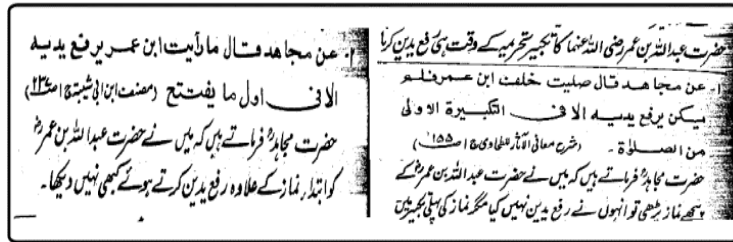 حضرت عبداللہ بن عمر رضی اللہ عنہما کا تکبیر تحریمہ کے وقت ہی رفع یدین کرنا
۱۔ عن مجاهد قال صلیت خلف ابن عمر فلم
یکن یرفع یدیه الا فی التکبیرة الاولی
من الصلوٰة ۔ (شرح معانی الآثار للطحاوی ج ۱ ص ۱۵۵)
حضرت مجاہدؒ فرماتے ہیں کہ میں نے حضرت عبداللہ بن عمرؓ کے
پیچھے نماز پڑھی تو انہوں نے رفع یدین نہیں کیا مگر نماز کی پہلی تکبیر میں
۲۔ عن مجاهد قال ما رأیت ابن عمر یرفع یدیه
الا فی اول ما یفتتح (مصنف ابن ابی شیبۃ ج ۱ ص ۲۳۷)
حضرت مجاہدؒ فرماتے ہیں کہ میں نے حضرت عبداللہ بن عمرؓ
کو ابتداء نماز کے علاوہ رفع یدین کرتے ہوئے کبھی نہیں دیکھا۔